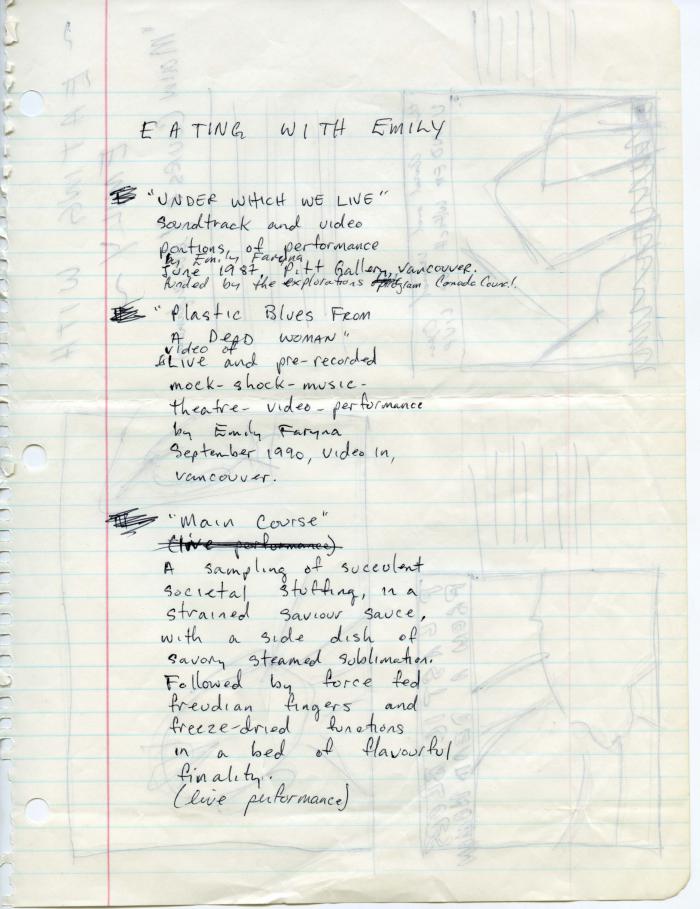 EATING WITH EMILY
"UNDER WHICH WE LIVE"
Soundtrack and video
portions, of performance
by Emily Faryna
June 1987, Pitt Gallery, Vancouver.
funded by the explorations program Canada Council.
"Plastic Blues From
A Dead WOMAN"
video of
Live and pre-recorded
mock-shock-music-
theatre-video-performance
by Emily Faryna
September 1990, Video In,
Vancouver.
"Main Course"
(live performance)
A sampling of succulent
societal stuffing, in a
strained saviour sauce,
with a side dish of
savory steamed sublimation.
Followed by force fed
freudian fingers and
freeze-dried functions
in a bed of flavourful
finality.
(live performance)